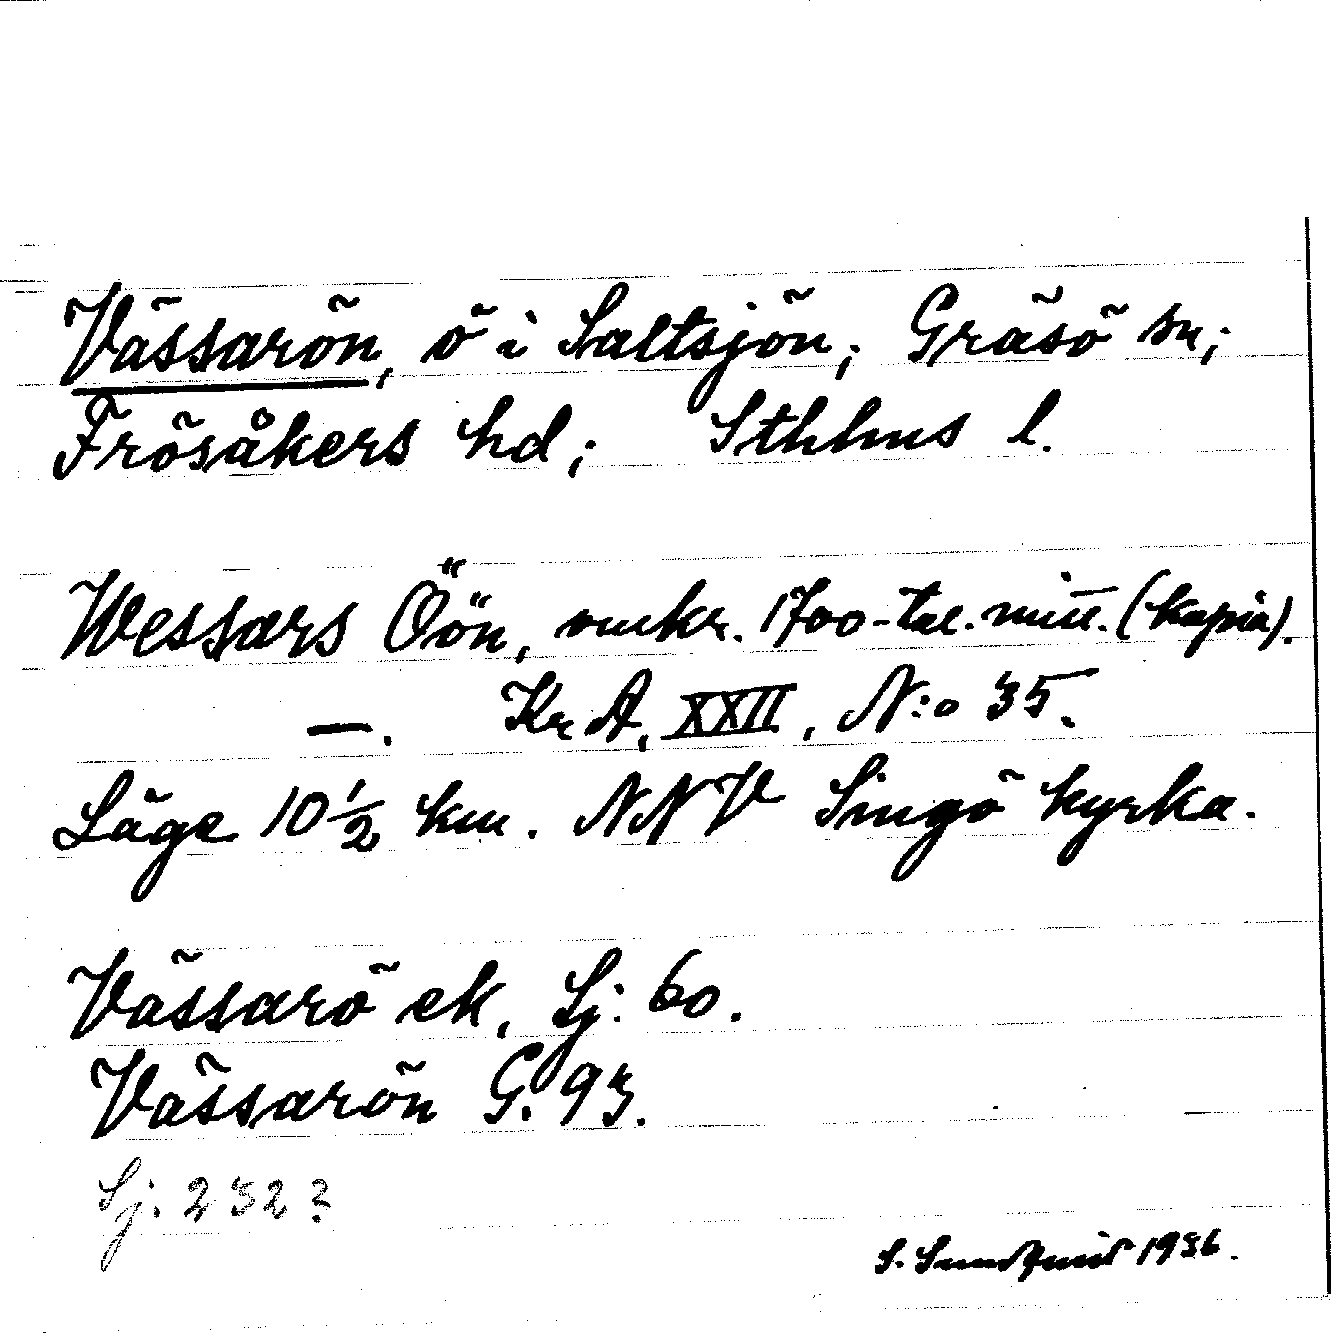 Vässarön, ö i Saltsjön; Gräsö sn;
Frösåkers hd; Sthlms l.
Wessars Öön, omkr. 1700-tal. mitt. (kopia).
—. Kr A, XXII, N:o 35.
Läge 10 1/2 km. NNV Singö kyrka.
Vässarö ek, Sj: 60.
Vässarön G. 93.
Sj. 232?
S. Sundquist 1936.